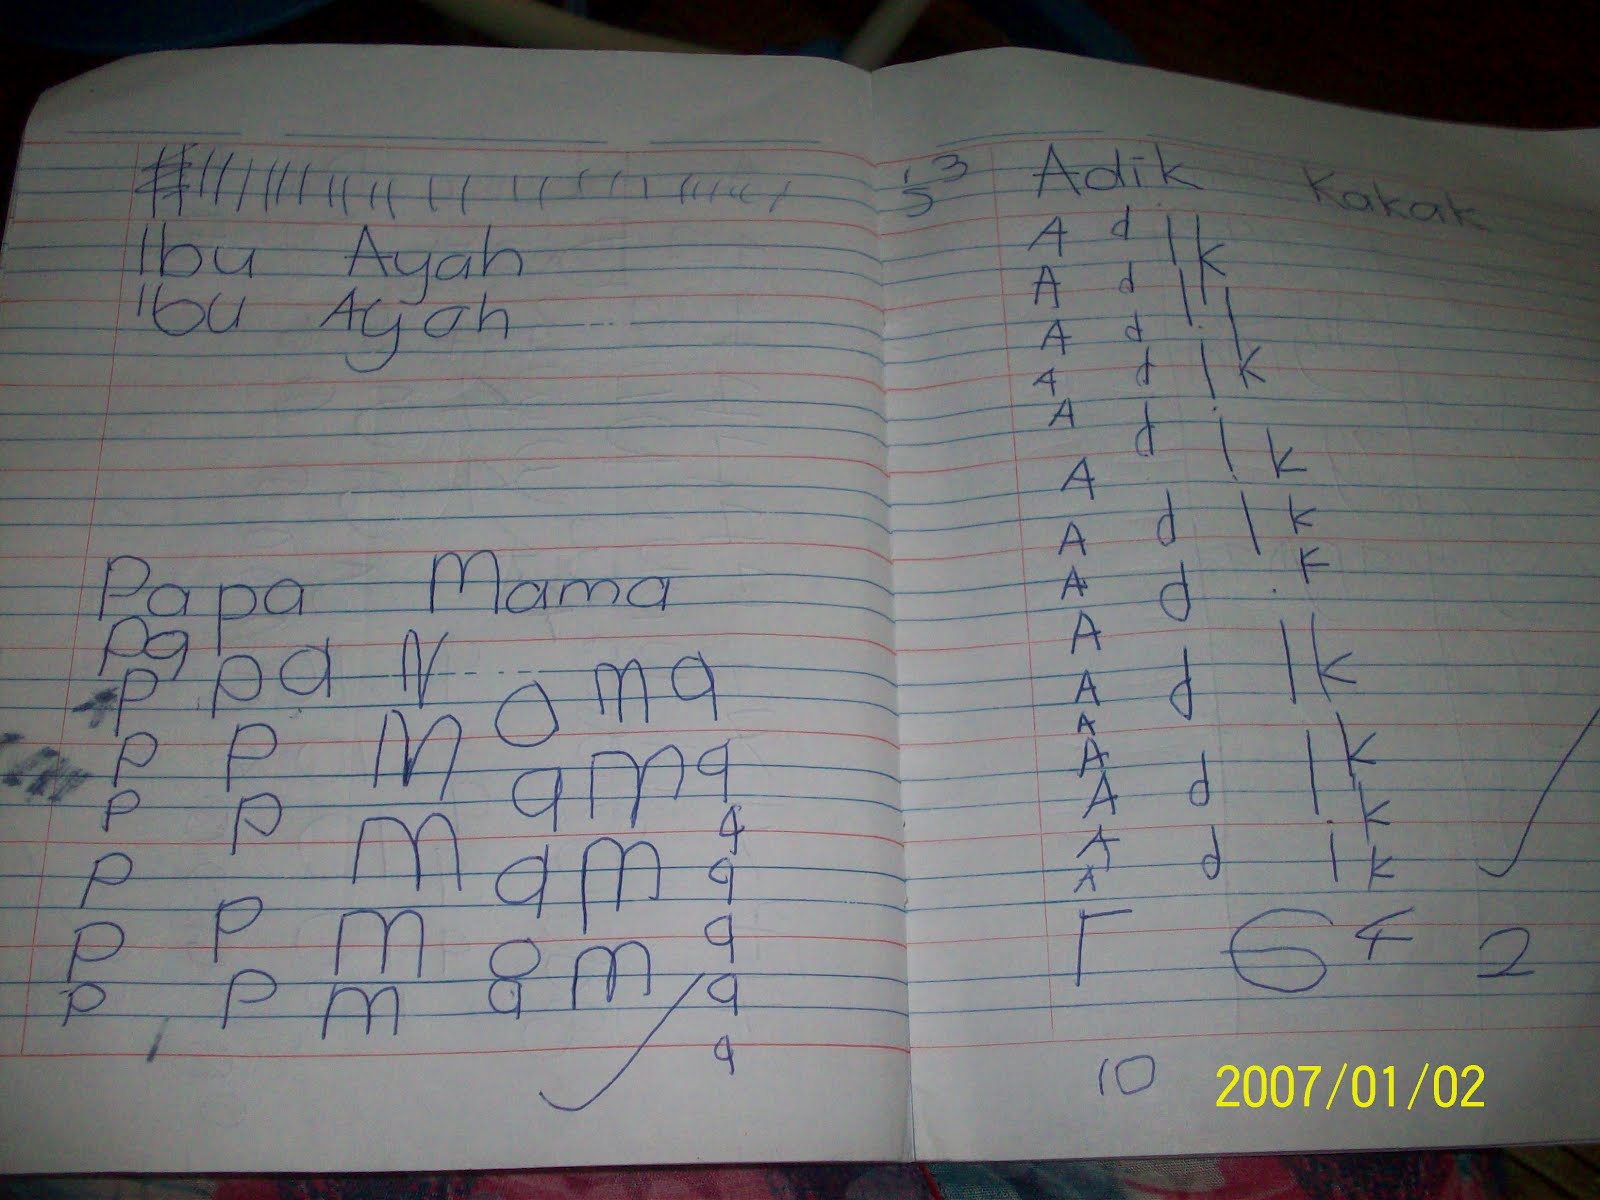 Ibu Ayah
Ibu Ayah
Papa Mama
pa pa N
P o m a
P P M a m a
P P M a m a
P P m a m a
P P m a m a
a
1 3
5
Adik Kakak
A d i k
A d i
A d i k
A d i k
A d i k
A d i k
A d k
A d i k
A
A d i k
A k
A d i k
A
5 4 2
10
2007/01/02